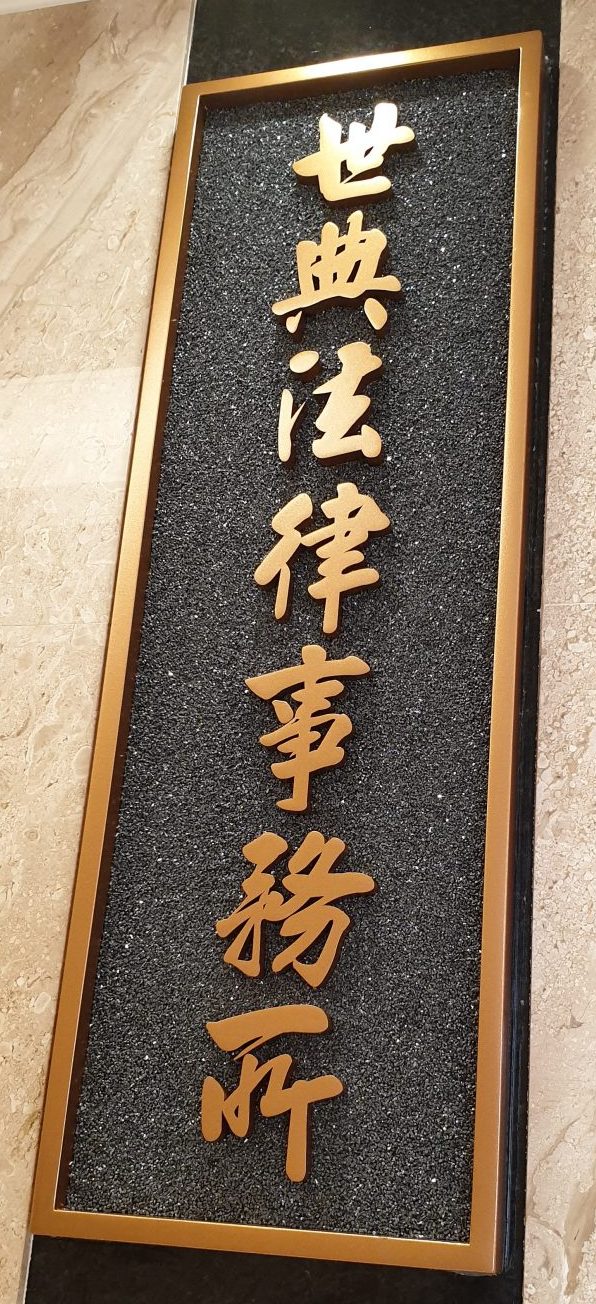 世典法律事務所